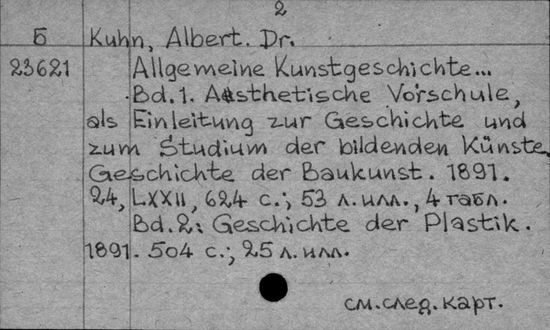 2
Б Kuhn, Albert. Dr.
23621 Allgemeine Kunstgeschichte...
Bd.1. Aesthetische Vorschule,
als Einleitung zur Geschichte und
zum Studium der bildenden Künste,
Geschichte der Baukunst. 1891.
24, LXXII, 624 с.; 53 л. илл., 4 табл.
Bd.2: Geschichte der Plastik.
1891. 504 с.; 25 л. илл.
см. след. карт.